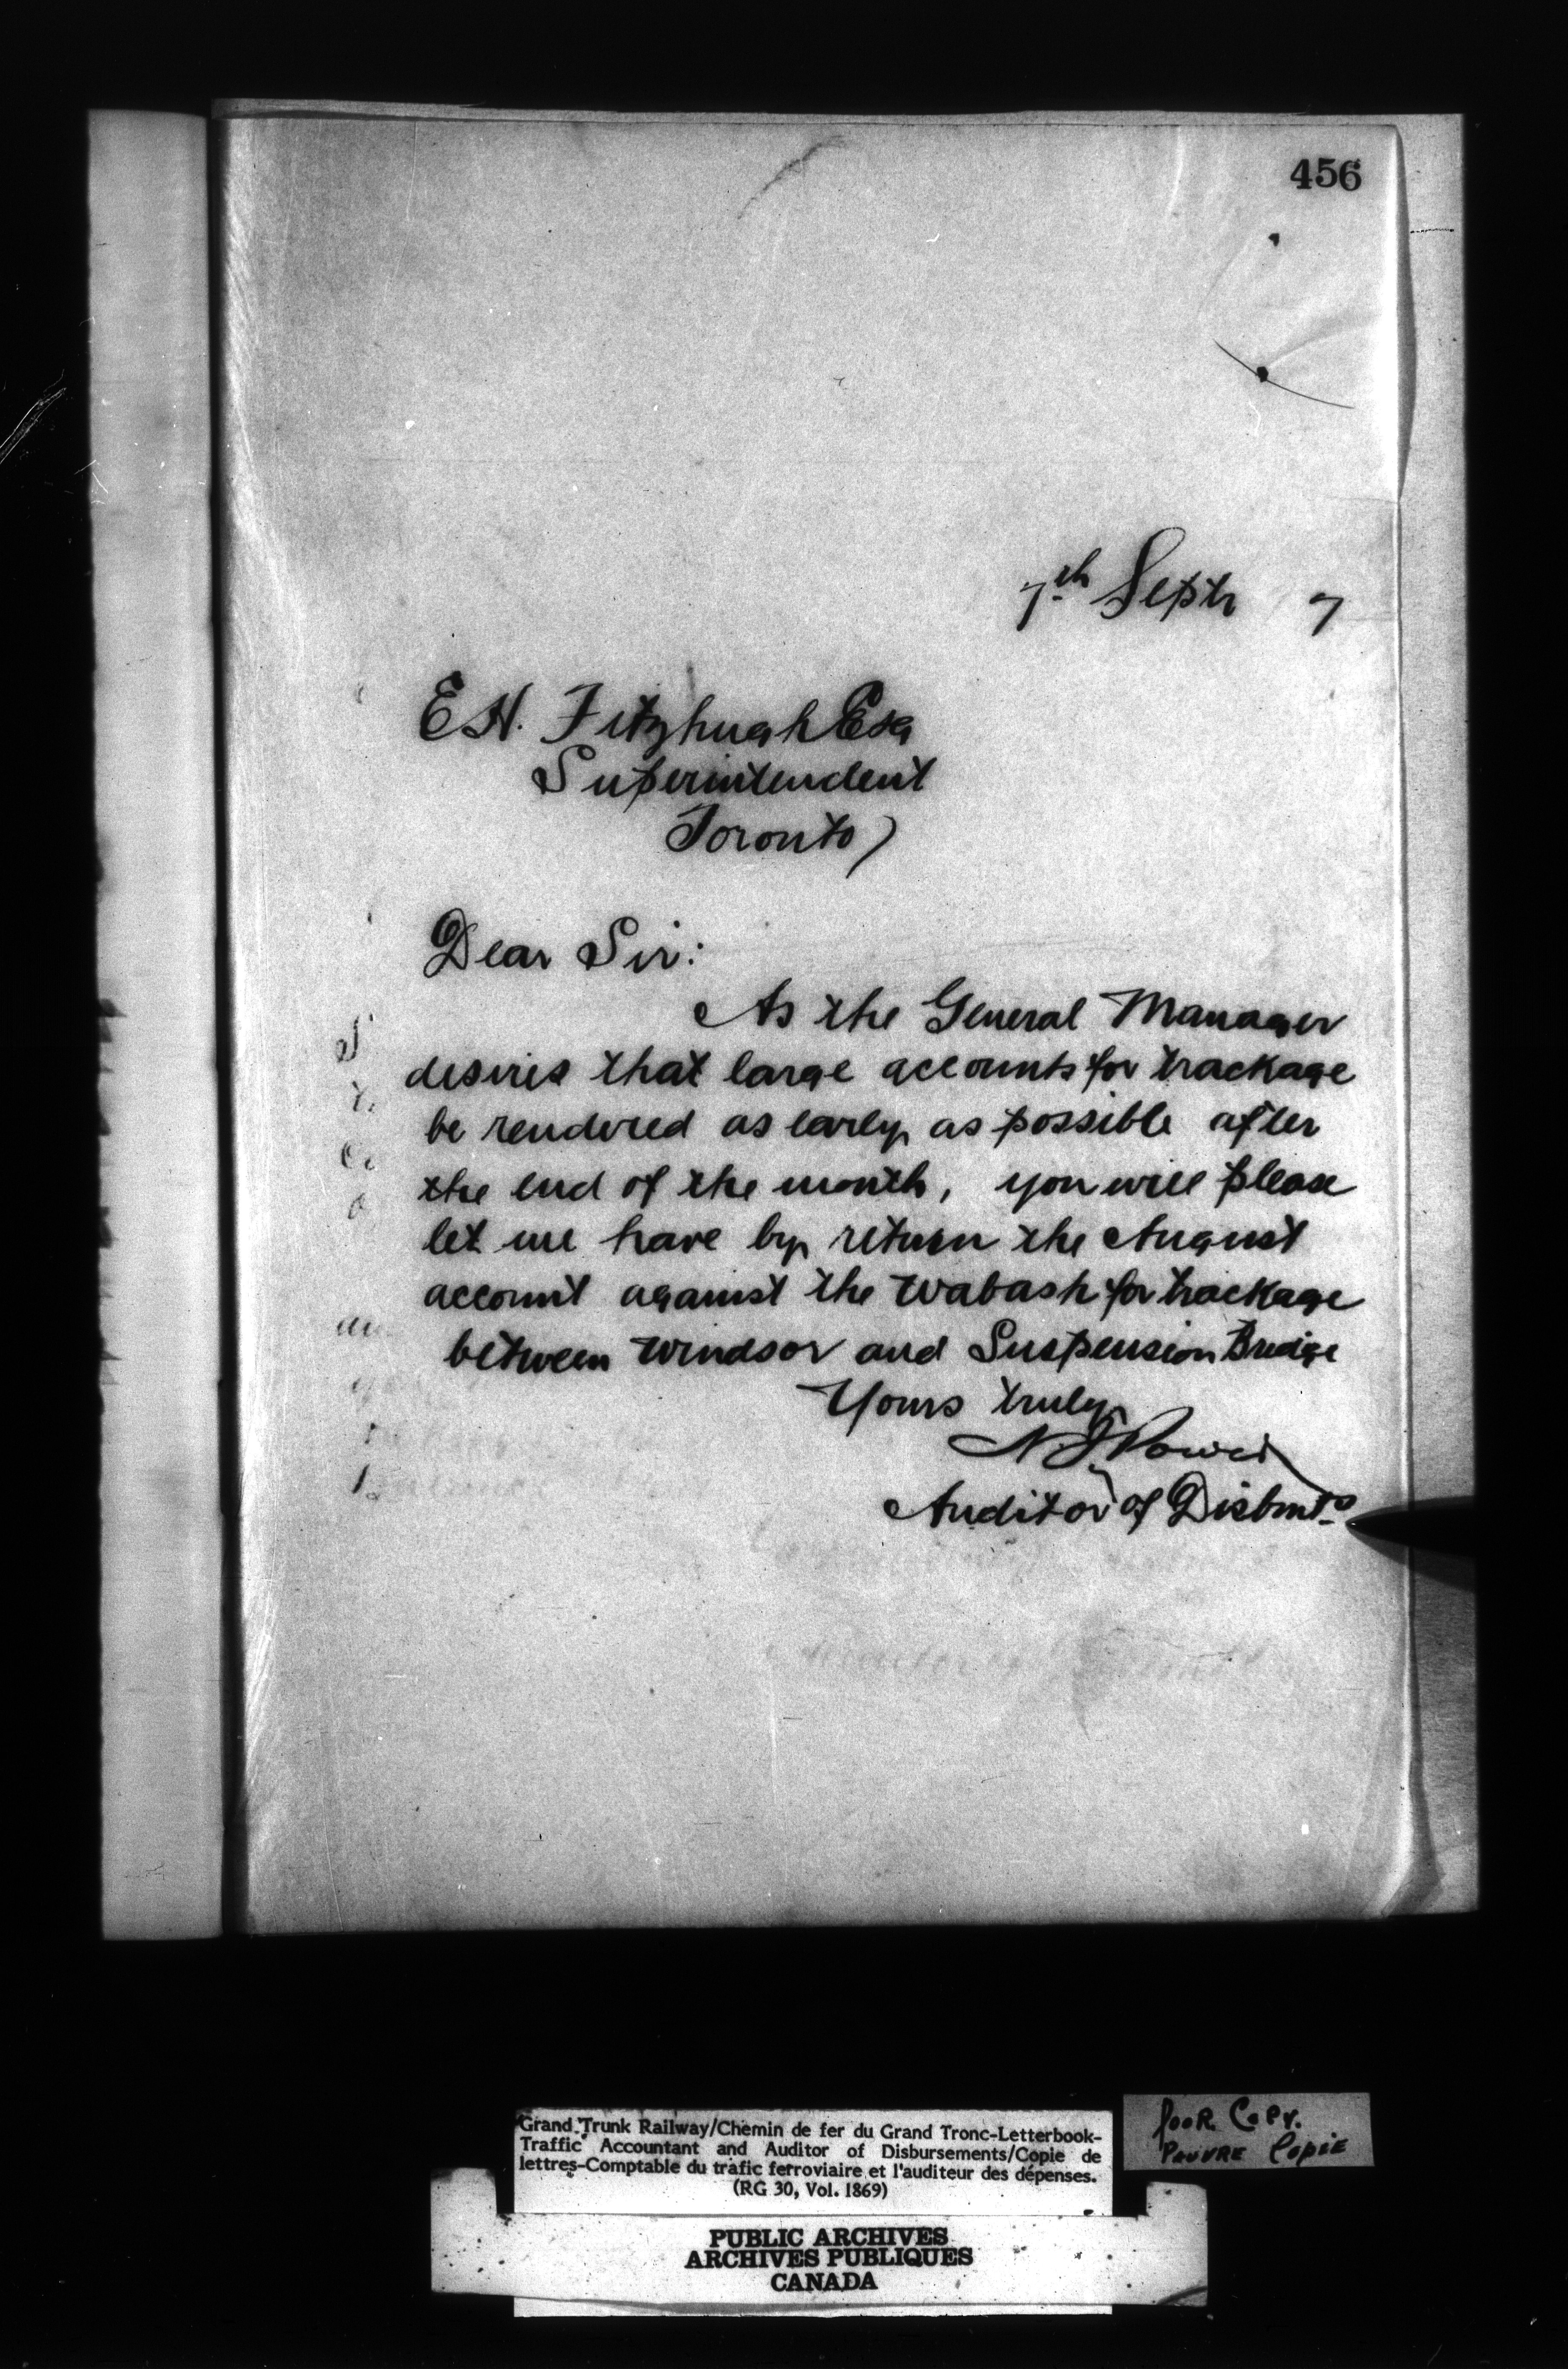 456
7th Septr 7
E H. Fitzhugh Esq
Superintendent
Toronto
Dear Sir:
As the General Manager
desires that large accounts for trackage
be rendered as early as possible after
the end of the month, you will please
let me have by return the August
account against the Wabash for trackage
between Windsor and Suspension Bridge
Yours truly
N J Power
Auditor of Disbmts
Grand Trunk Railway/Chemin de fer du Grand Tronc-Letterbook-
Traffic Accountant and Auditor of Disbursements/Copie de
lettres-Comptable du trafic ferroviaire et l'auditeur des dépenses.
(RG 30, Vol. 1869)
POOR COPY.
PAUVRE COPIE
PUBLIC ARCHIVES
ARCHIVES PUBLIQUES
CANADA